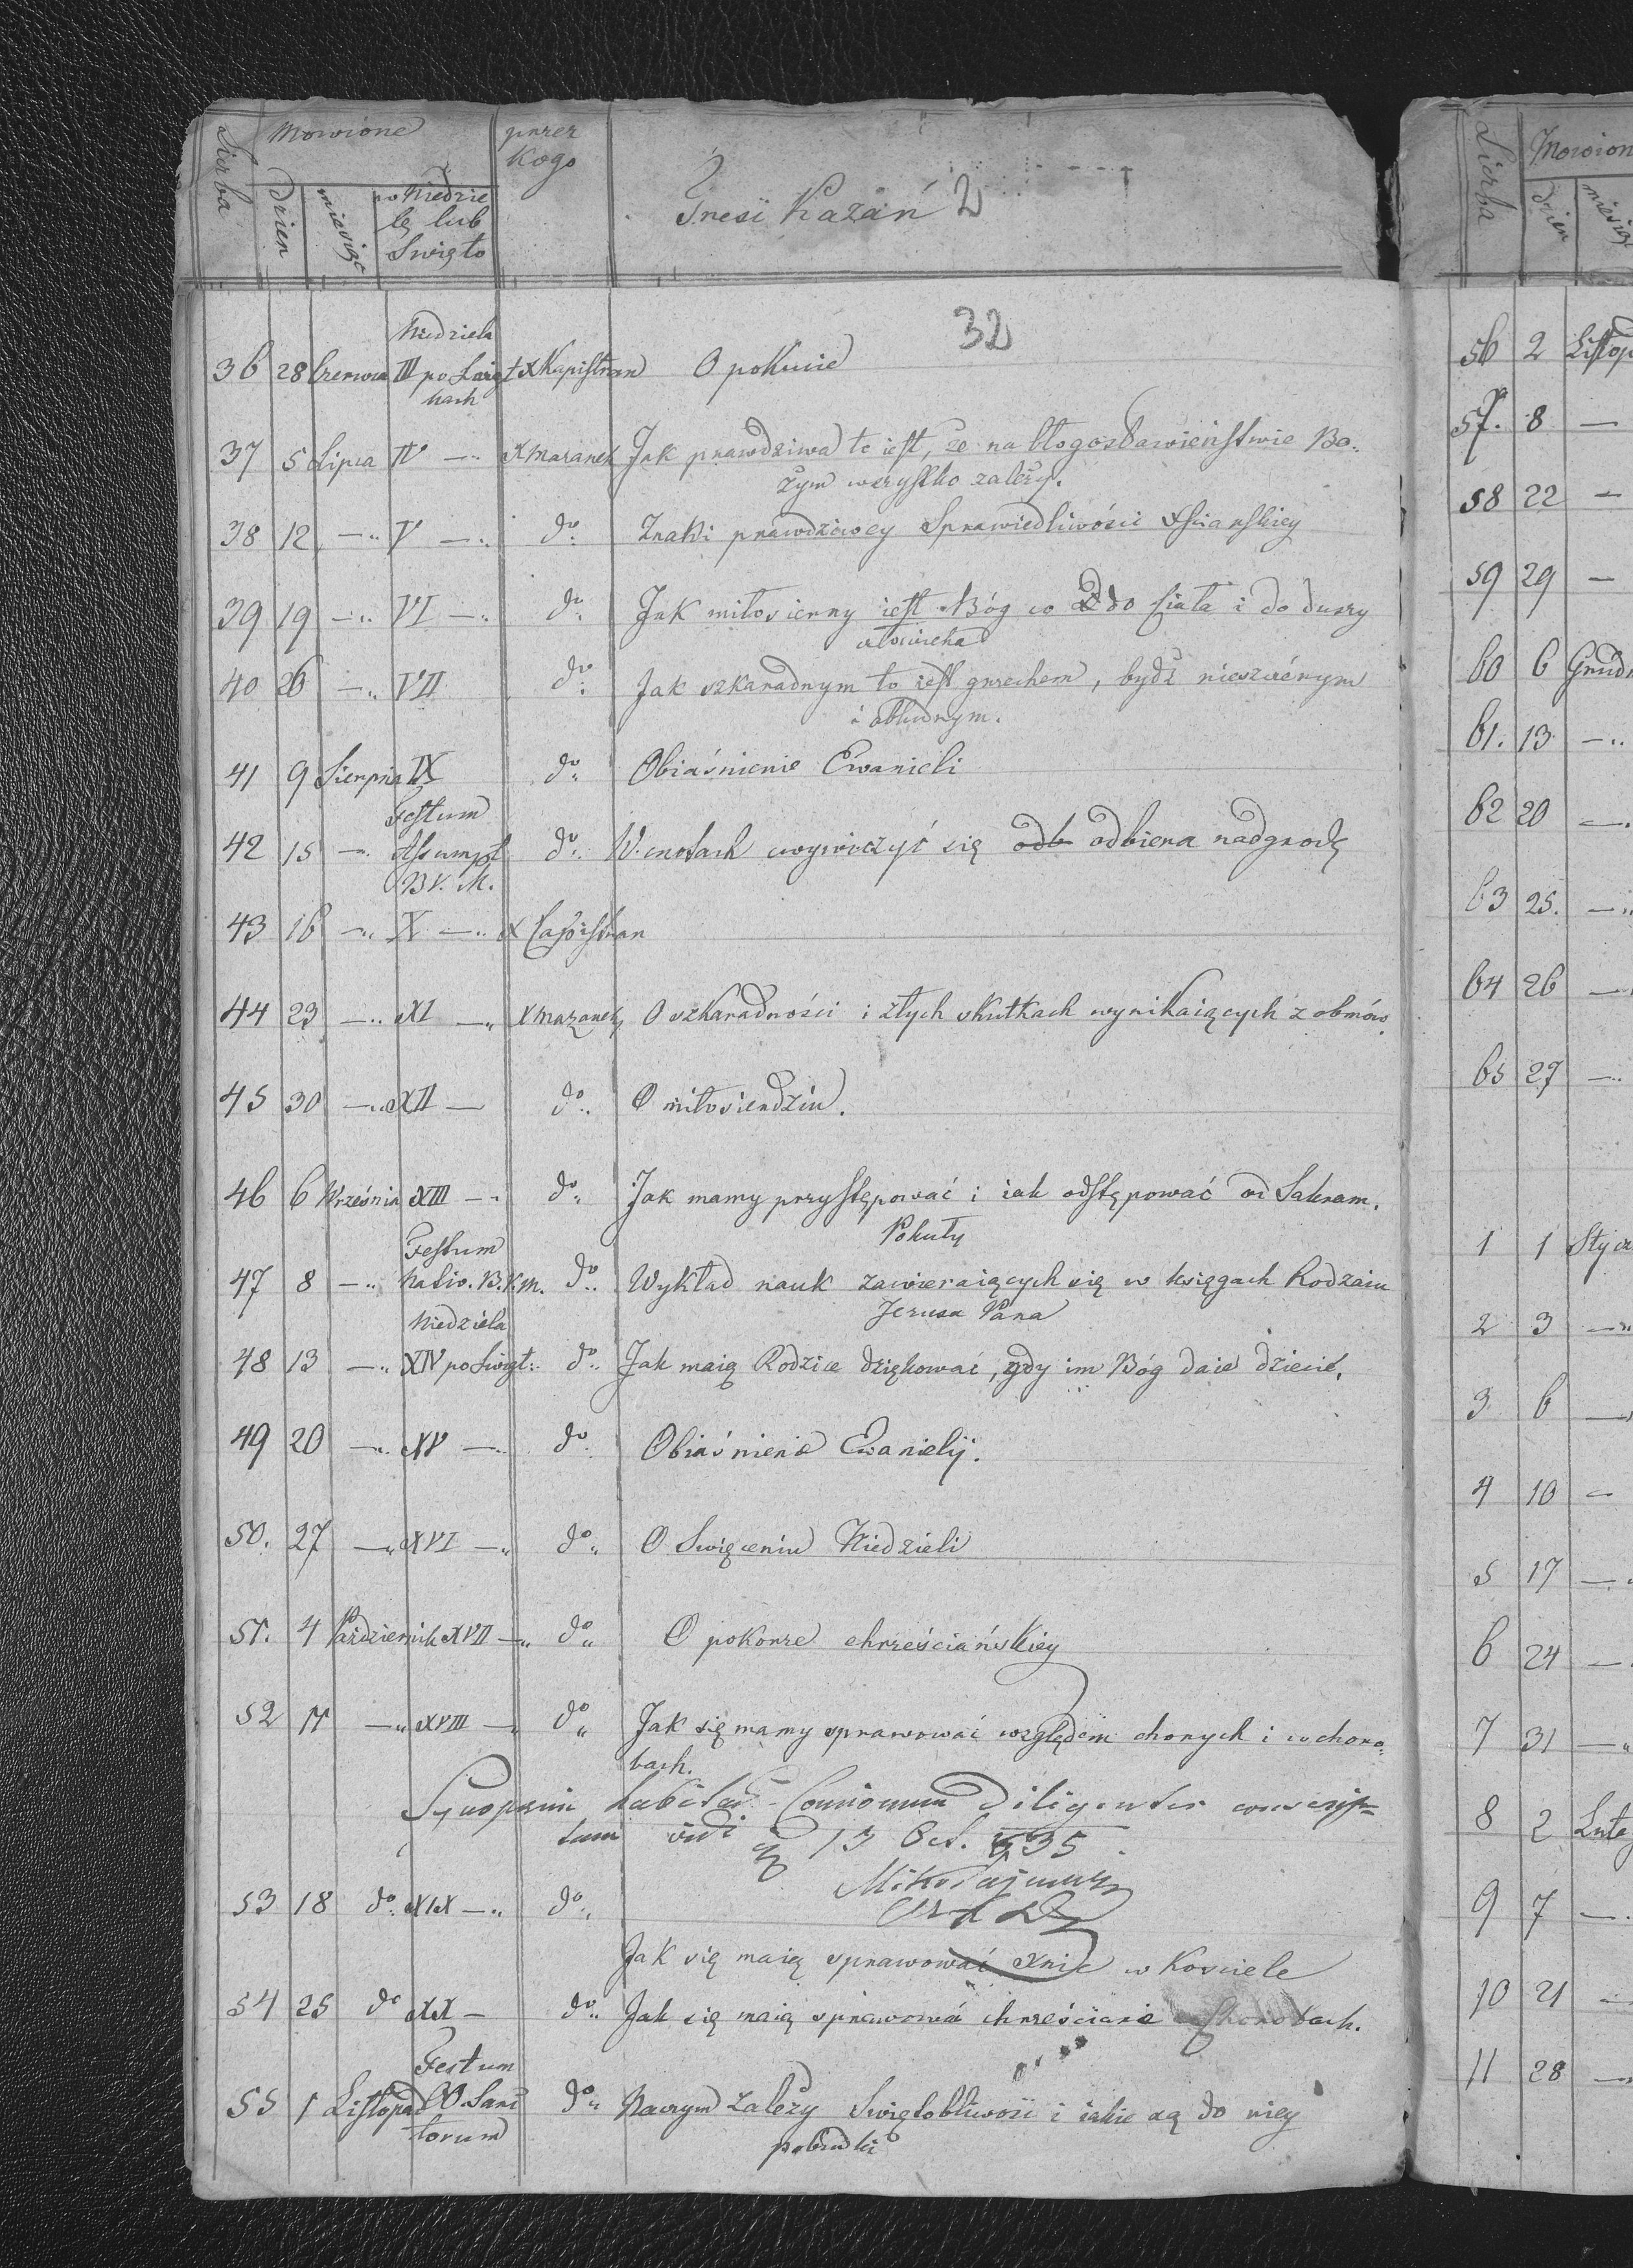 Liczba Mowione przez
Kogo
Dzien miesiąc w Niedzie
lę lub
Swięto
Tresć Kazań 2
32
Niedziela
36 28 Czerwca III po Świąt X Kapistran O pokucie
kach
37 5 Lipca IV —„ X Mazanek Jak prawdziwa to iest, że na błogosławieństwie Bo„
żym wszystko zależy.
38 12 —„ V —„ do„ Znaki prawdziwey Sprawiedliwości Xsciańskiey
39 19 —„ VI —„ do„ Jak miłosierny iest Bóg co do Ciała i do duszy
człowieka
40 26 —„ VII do„ Jak szkaradnym to iest grzechem, bydź nieszczérym
i obłudnym.
41 9 Sierpnia IX do„ Obiaśnienie Ewanieli
Festum
42 15 —„ Assumpt do„ W cnotach wywiczyć się odb odbiera nadgrodę
B.V.M.
43 16 —„ X —„ X Capistran
44 23 —„ XI —„ X Mazanek O szkaradności i złych skutkach wynikaiących z obmów.
45 30 —„ XII — do„ O miłosierdziu.
46 6 Września XIII —„ do„ Jak mamy przystępować i iak odstępować od Sakram.
Pokuty
Festum
47 8 —„ Nativ. B.V.M. do„ Wykład nauk zawieraiących się w księgach Rodzaiu
Jezusa Pana
Niedziela
48 13 —„ XIV po Świąt: do„ Jak maią Rodzice dziękować, gdy im Bóg daie dziecie,
49 20 —„ XV —„ do„ Obiaśnienie Ewanielij.
50. 27 —„ XVI —„ do„ O Swięceniu Niedzieli
51. 4 Październik XVII —„ do„ O pokorze chrześciańskiey
52 11 —„ XVIII —„ do„ Jak się mamy sprawować względem chorych i w choro„
bach.
Synopsim habitar. Concionum diligenter conscrip=
tam vidi 13 Oct. 835.
53 18 do„ XIX —„ do„
Jak się maią sprawować Xnie w Kosciele
54 25 do XX — do„ Jak się maią sprawować chrześcianie w chorobach.
Festum
55 1 Listopad OO. Sanc do„ Na czym zależy Swiętobliwość i iakie są do niey
torum
pobudki
Liczba Mowion
dzien miesiąc
56 2 Listop
57. 8 —
58 22 —
59 29 —
60 6 Grudn
61. 13 —„
62 20 —„
63 25. —„
64 26 —„
65 27 —„
1 1 Stycz
2 3 —„
3 6 —„
4 10 —
5 17 —„
6 24 —„
7 31 —„
8 2 Lute
9 7 —„
10 21 —
11 28 —„